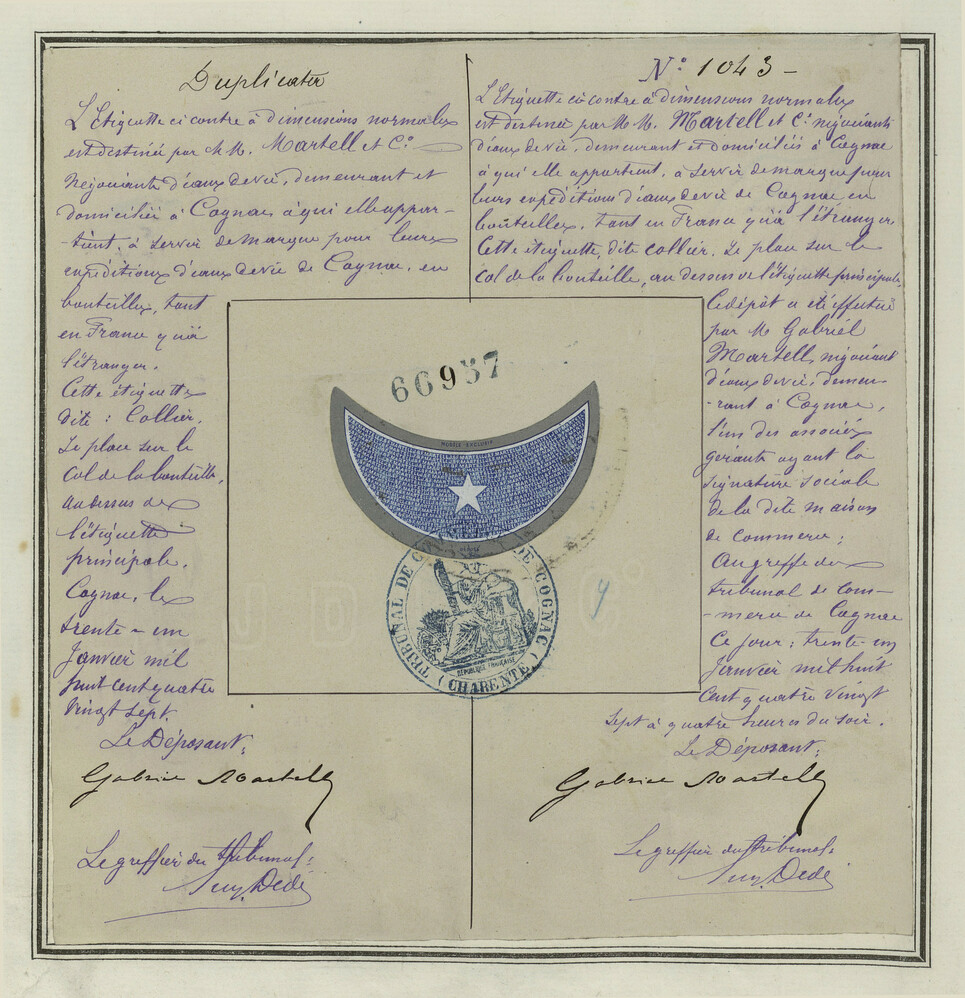 Duplicata
L'Etiquette ci contre à dimensions normales
est destinée par M.M. Martell et Cie
Négociants d'eaux de vie, demeurant et
domiciliés à Cognac, à qui elle appar-
-tient, à servir de marque pour leurs
expéditions d'eaux de vie de Cognac, en
bouteilles, tant
en France qu'à
l'étranger.
Cette étiquette
dite : Collier,
Se place sur le
Col de la bouteille,
au dessus de
l'étiquette
principale.
Cognac, le
trente-un
Janvier mil
huit cent quatre
vingt sept.
Le Déposant:
Gabriel Martell
Le greffier du tribunal:
N° 1043 -
L'Etiquette ci contre à dimensions normales
est destinée par M.M. Martell et Cie négociants
d'eaux de vie, demeurant et domiciliés à Cognac
à qui elle appartient, à servir de marque pour
leurs expéditions d'eaux de vie de Cognac en
bouteilles, tant en France qu'à l'étranger.
Cette étiquette, dite collier, se place sur le
Col de la bouteille, au dessus de l'étiquette principale.
Ce dépôt a été effectué
par M. Gabriel
Martell, négociant
d'eaux de vie, demeu-
-rant à Cognac,
l'un des associés
gérants ayant la
signature sociale
de la dite maison
de commerce;
Au greffe du
tribunal de Com-
-merce de Cognac
Ce jour; trente un
Janvier mil huit
cent quatre vingt
sept à quatre heures du soir.
Le Déposant:
Gabriel Martell
Le greffier du tribunal:
66937
MODÈLE EXCLUSIF
TRIBUNAL DE COMMERCE DE COGNAC
RÉPUBLIQUE FRANÇAISE
(CHARENTE)